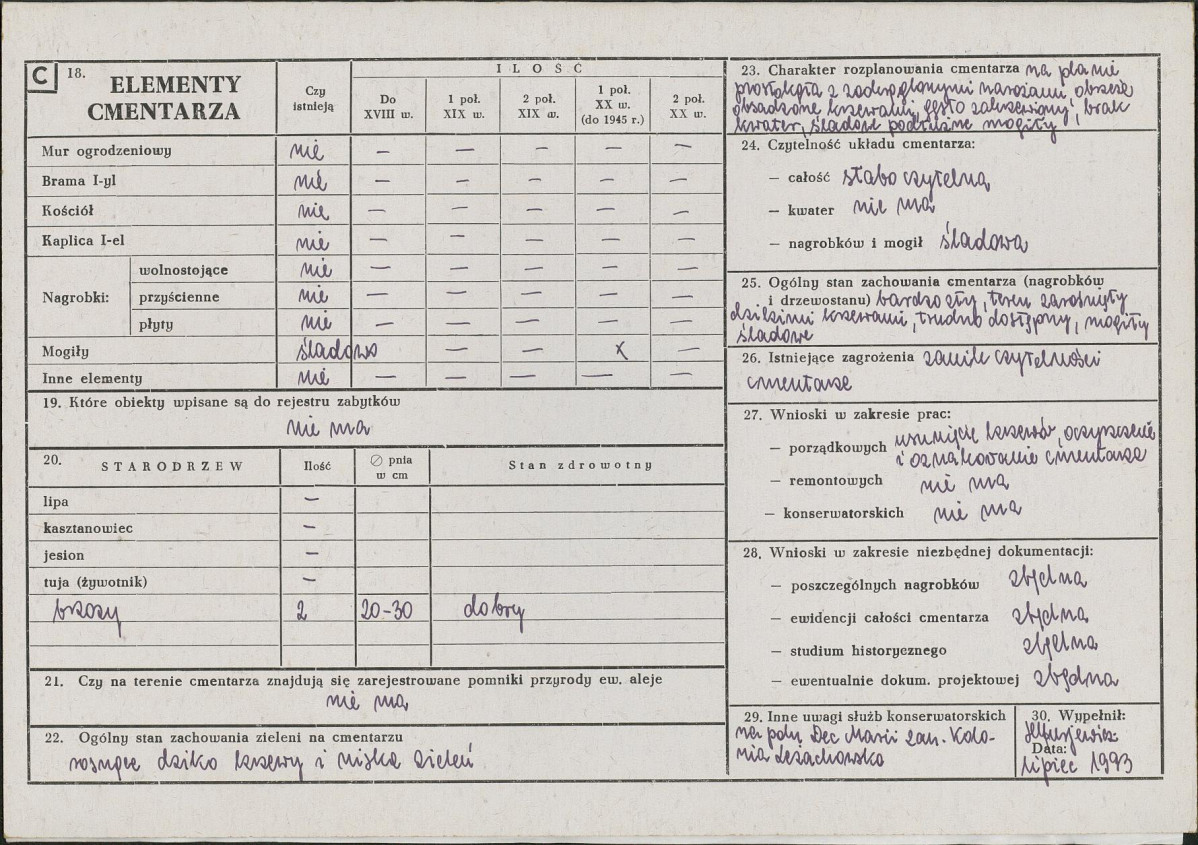 C 18. ELEMENTY CMENTARZA Czy istnieją ILOŚĆ
Do XVIII w. 1 poł. XIX w. 2 poł. XIX w. 1 poł. XX w. (do 1945 r.) 2 poł. XX w.
Mur ogrodzeniowy nie — — — — —
Brama I-yl nie — — — — —
Kościół nie — — — — —
Kaplica I-el nie — — — — —
Nagrobki:
wolnostojące nie — — — — —
przyścienne nie — — — — —
płyty nie — — — — —
Mogiły śladowo — — x —
Inne elementy nie — — — — —
19. Które obiekty wpisane są do rejestru zabytków
nie ma
20. STARODRZEW Ilość ∅ pnia w cm Stan zdrowotny
lipa —
kasztanowiec —
jesion —
tuja (żywotnik) —
brzozy 2 20-30 dobry
21. Czy na terenie cmentarza znajdują się zarejestrowane pomniki przyrody ew. aleje
nie ma
22. Ogólny stan zachowania zieleni na cmentarzu
rosnące dziko krzewy i niska zieleń
23. Charakter rozplanowania cmentarza na planie
prostokąta z zaokrąglonymi narożami, obrzeże
obsadzone krzewami, gęsto zakrzewiony, brak
kwater, śladowe podłużne mogiły
24. Czytelność układu cmentarza:
— całość słabo czytelna
— kwater nie ma
— nagrobków i mogił śladowa
25. Ogólny stan zachowania cmentarza (nagrobków
i drzewostanu) bardzo zły, teren zarośnięty
dzikimi krzewami, trudno dostępny, mogiły
śladowe
26. Istniejące zagrożenia zanik czytelności
cmentarza
27. Wnioski w zakresie prac:
— porządkowych usunięcie krzewów, oczyszczenie
i oznakowanie cmentarza
— remontowych nie ma
— konserwatorskich nie ma
28. Wnioski w zakresie niezbędnej dokumentacji:
— poszczególnych nagrobków zbędna
— ewidencji całości cmentarza zbędna
— studium historycznego zbędna
— ewentualnie dokum. projektowej zbędna
29. Inne uwagi służb konserwatorskich
na polu Dec Marii zam. Kolo-
nia Leżachowska
30. Wypełnił:
Data:
lipiec 1993